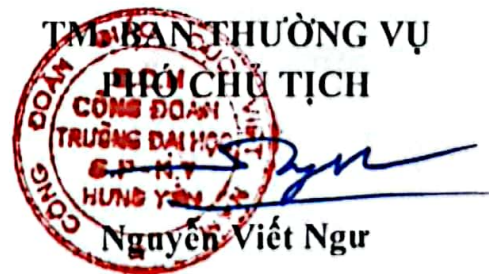 TM. BAN THƯỜNG VỤ
PHÓ CHỦ TỊCH
CÔNG ĐOÀN
TRƯỜNG ĐẠI HỌC
HƯNG YÊN
Nguyễn Viết Ngư